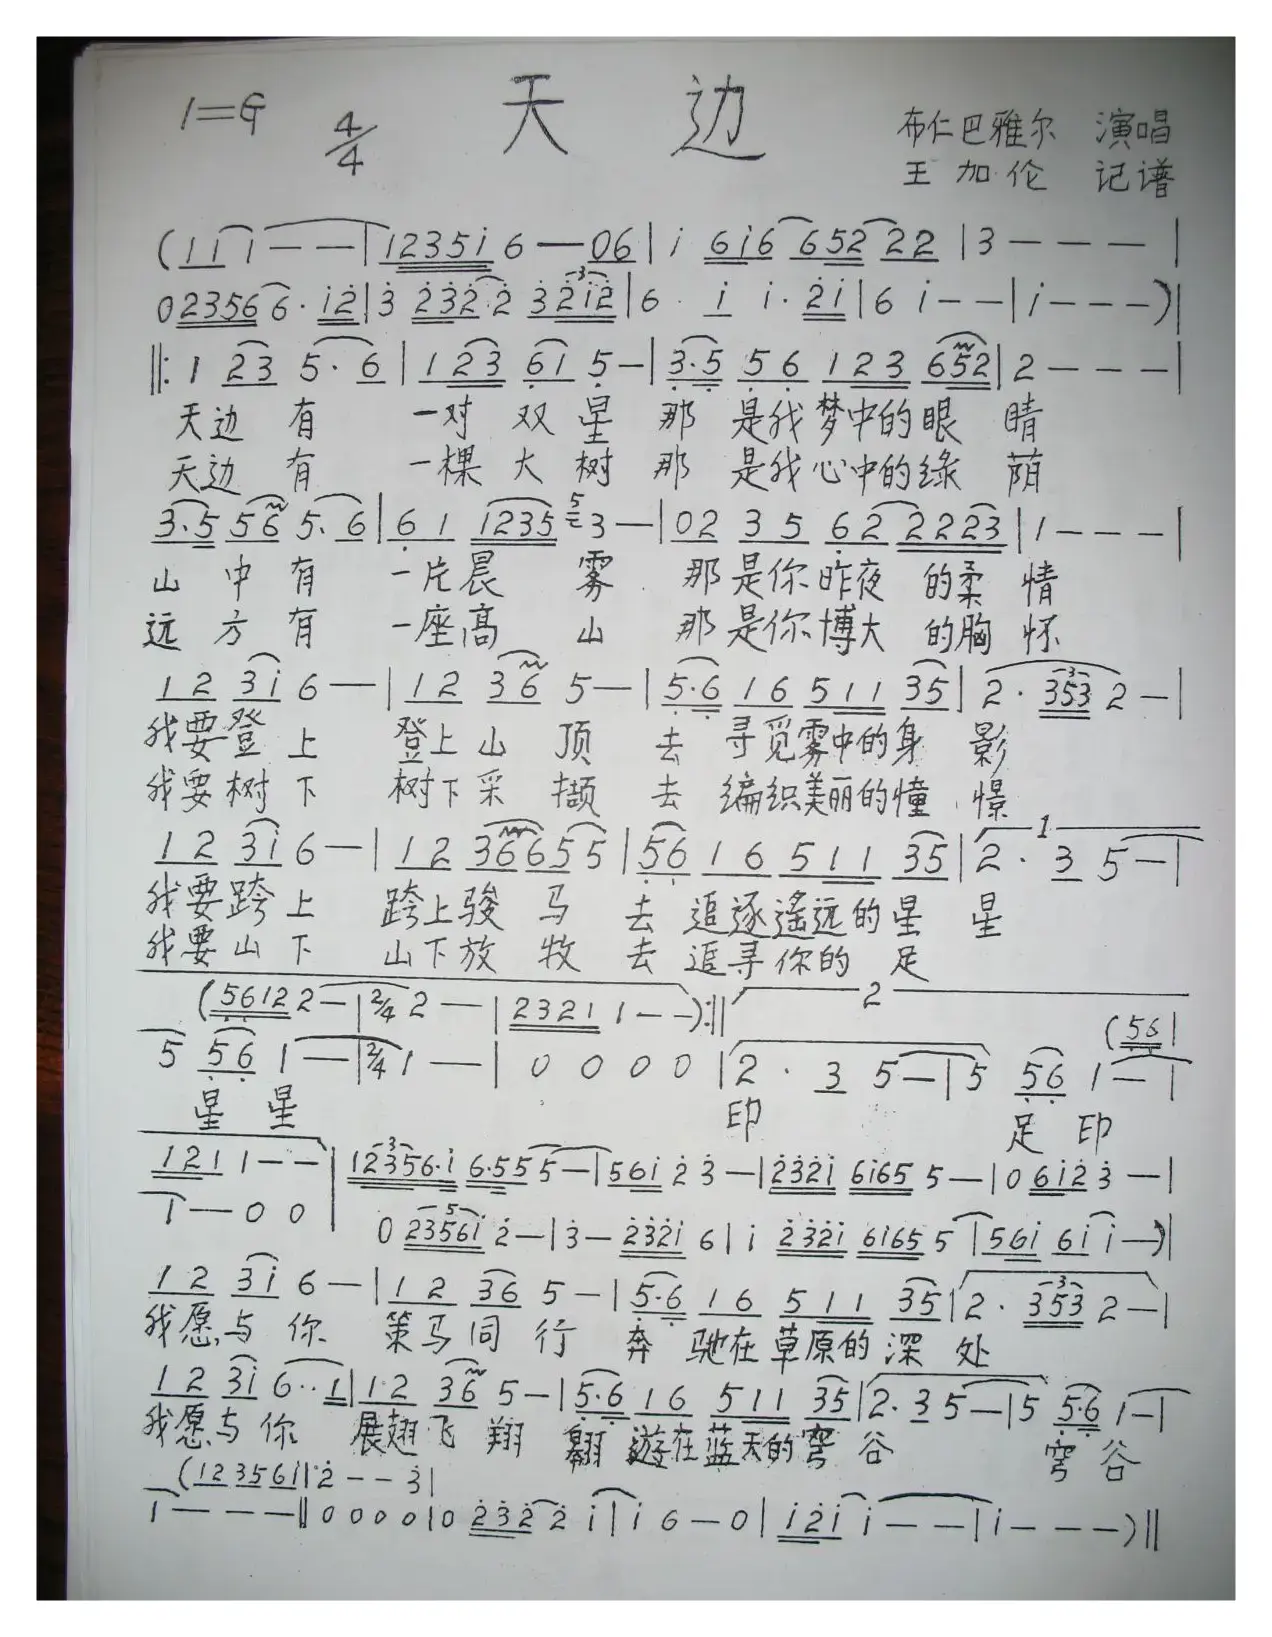 1=G 4/4 天边
布仁巴雅尔 演唱
王加伦 记谱
(1 1 i - - | 1235i 6 - 06 | i 6i6 652 22 | 3 - - - |
02356 6· i2 | 3 232·2 3 2i2 | 6 · i i· 2i | 6 i - - | i - - - )|
‖: 1 23 5· 6 | 1 23 61 5 - | 3·5 56 123 652 | 2 - - - |
天边 有 一对 双 星 那 是我梦中的眼 睛
天边 有 一棵 大 树 那 是我心中的绿 荫
3·5 56 5· 6 | 6 1 1235 5 3 - | 02 35 62 2223 | 1 - - - |
山 中 有 一片晨 雾 那是你昨夜 的柔 情
远 方 有 一座高 山 那是你博大 的胸 怀
12 3i 6 - | 12 36 5 - | 5·6 16 511 35 | 2· 353 2 - |
我要登 上 登上山 顶 去 寻觅雾中的身 影
我要树 下 树下采 撷 去 编织美丽的憧 憬
12 3i 6 - | 12 36655 | 56 16 511 35 | 1 2· 3 5 - |
我要跨 上 跨上骏 马 去 追逐遥远的星 星
我要山 下 山下放 牧 去 追寻你的 足
(5612 2 - | 2/4 2 - | 2321 1 - - ):‖ 2
(56 |
5 56 1 - | 2/4 1 - - | 0 0 0 0 | 2 · 3 5 - | 5 56 1 - |
星 星 印 足 印
121 1 - - | 12356·i 6·55 5 - | 56i 2 3 - | 232i 6i65 5 - | 0 6i2 3 - |
1 - 0 0 | 0 2356i 5 2 - | 3 - 232i 6 | i 232i 6i65 5 | 56i 6i i - )|
12 3i 6 - | 12 36 5 - | 5·6 16 511 35 | 2· 353 2 - |
我愿与 你 策马同 行 奔 驰在草原的深 处
12 3i 6··1 | 12 36 5 - | 5·6 16 511 35 | 2·3 5 - | 5 5·6 1 - |
我愿与 你 展翅飞 翔 翱 遊在蓝天的穹 谷 穹 谷
(12 3561 | 2 - - 3 |
1 - - - ‖ 0 0 0 0 | 0 232 2 i | i 6 - 0 | i2i i - - | i - - - )‖